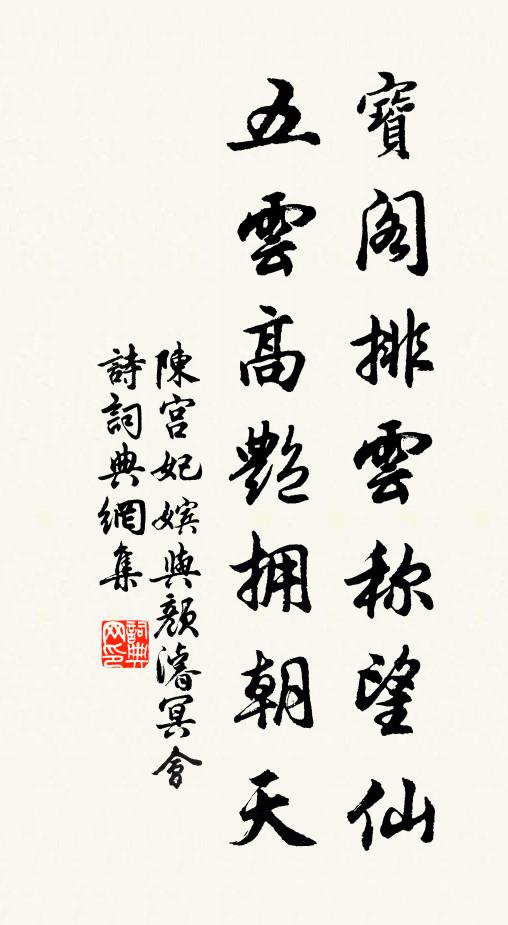 寶閣排雲称望仙
五雲高艷拥朝天
陳宮妃嬪與顏濬冥會
詩詞典網集
詞典网印